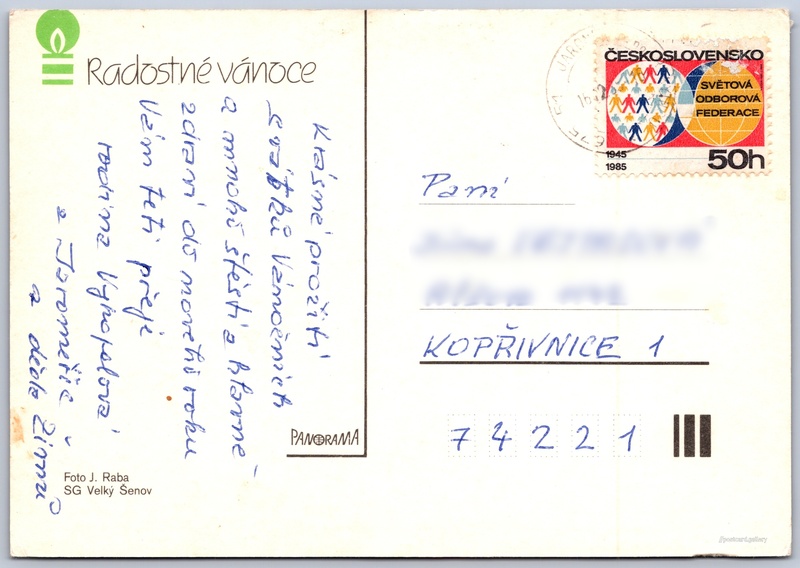 Radostné vánoce
Krásné prožití
svátků Vánočních
a mnoho štěstí a hlavně
zdraví do nového roku
Vám teti přeje
rodina Vyhopálová
z Jaroměřic
a děda Zimu
PANORAMA
Foto J. Raba
SG Velký Šenov
ČESKOSLOVENSKO
SVĚTOVÁ
ODBOROVÁ
FEDERACE
1945
1985
50h
Paní
KOPŘIVNICE 1
74221
postcard.gallery